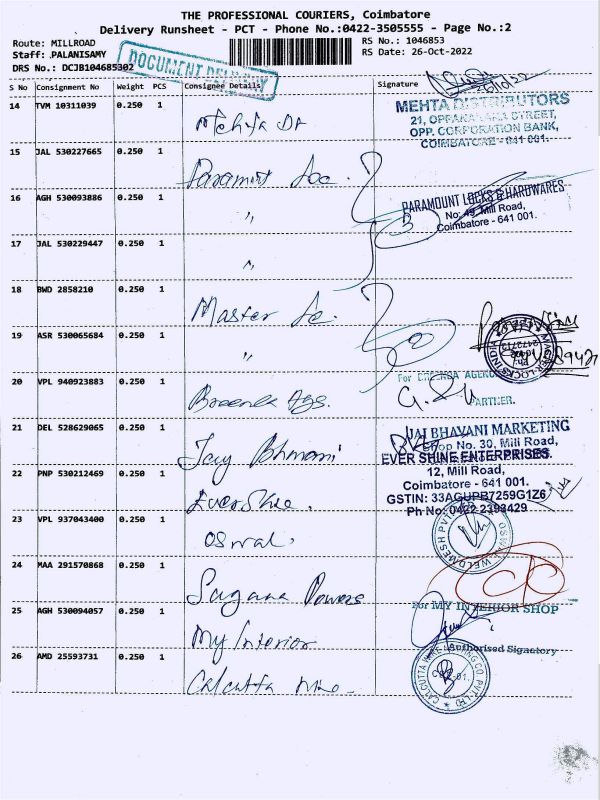 THE PROFESSIONAL COURIERS, Coimbatore
Delivery Runsheet - PCT - Phone No.:0422-3505555 - Page No.:2
Route: MILLROAD
RS No.: 1046853
Staff: PALANISAMY
RS Date: 26-Oct-2022
DRS No.: DCJB104685302
DOCUMENT DELIVERY
S No Consignment No Weight PCS Consignee Details Signature
14 TVM 10311039 0.250 1 Mehta Dt
MEHTA DISTRIBUTORS
21, OPPANAKARA STREET,
OPP. CORPORATION BANK,
COIMBATORE - 641 001.
15 JAL 530227665 0.250 1 Paramount Loc
16 AGH 530093886 0.250 1 "
PARAMOUNT LOCKS & HARDWARES
No: 49, Mill Road,
Coimbatore - 641 001.
17 JAL 530229447 0.250 1 "
18 BWD 2858210 0.250 1 Master Lc.
19 ASR 530065684 0.250 1 "
20 VPL 940923883 0.250 1 Ags.
For AGENC
PARTNER.
21 DEL 528629065 0.250 1 Jay Bhavani
JAI BHAVANI MARKETING
Shop No. 30, Mill Road,
22 PNP 530212469 0.250 1 Evershine.
EVER SHINE ENTERPRISES
12, Mill Road,
Coimbatore - 641 001.
GSTIN: 33AGUPB7259G1Z6
Ph No: 0422 2393429
23 VPL 937043400 0.250 1 Oswal.
OSWAL WELDMESH PVT
24 MAA 291570868 0.250 1 Sugana Powers
25 AGH 530094057 0.250 1 My Interior
For MY INTERIOR SHOP
Authorised Signatory
26 AMD 25593731 0.250 1 Calcutta
CALCUTTA CO. PVT. LTD